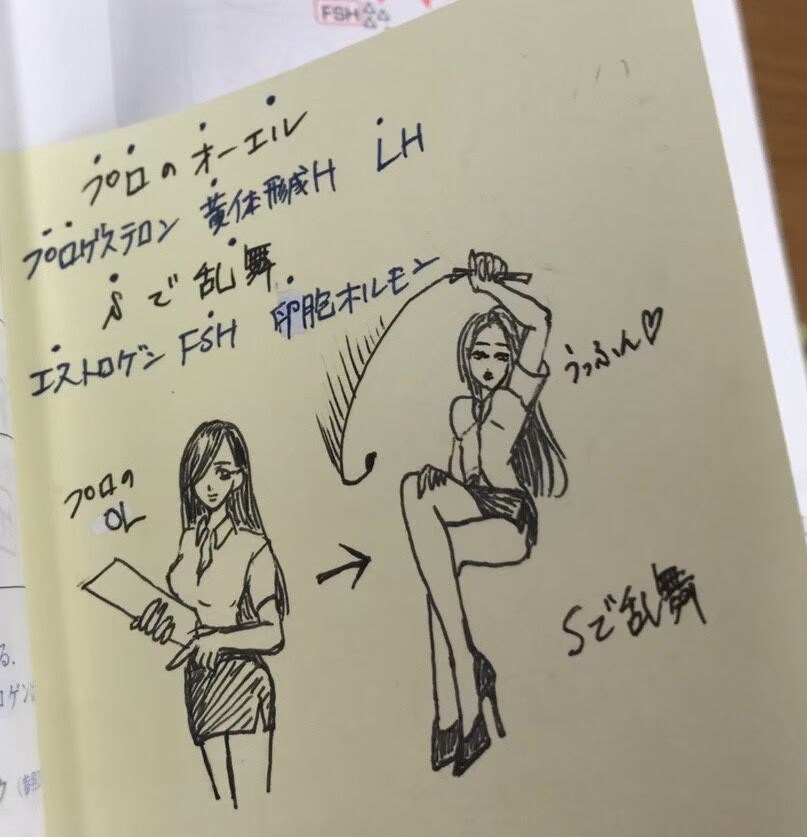 FSH
プロのオーエル
プロゲステロン 黄体形成H LH
Sで乱舞
エストロゲン FSH 卵胞ホルモン
うっふん♡
プロの
OL
Sで乱舞
る.
ロゲン